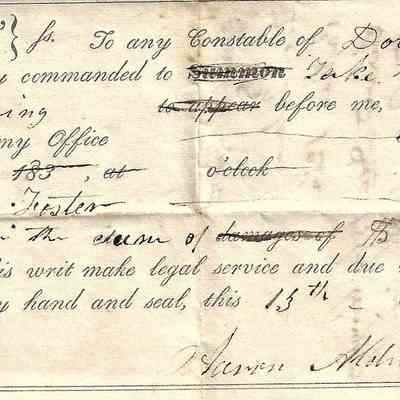 } ss. To any Constable of Do
y commanded to Summon Take
ing to appear before me,
my Office
183 , at o'clock
Foster
in the sum of damages of $
is writ make legal service and due
y hand and seal, this 13th
Aaron